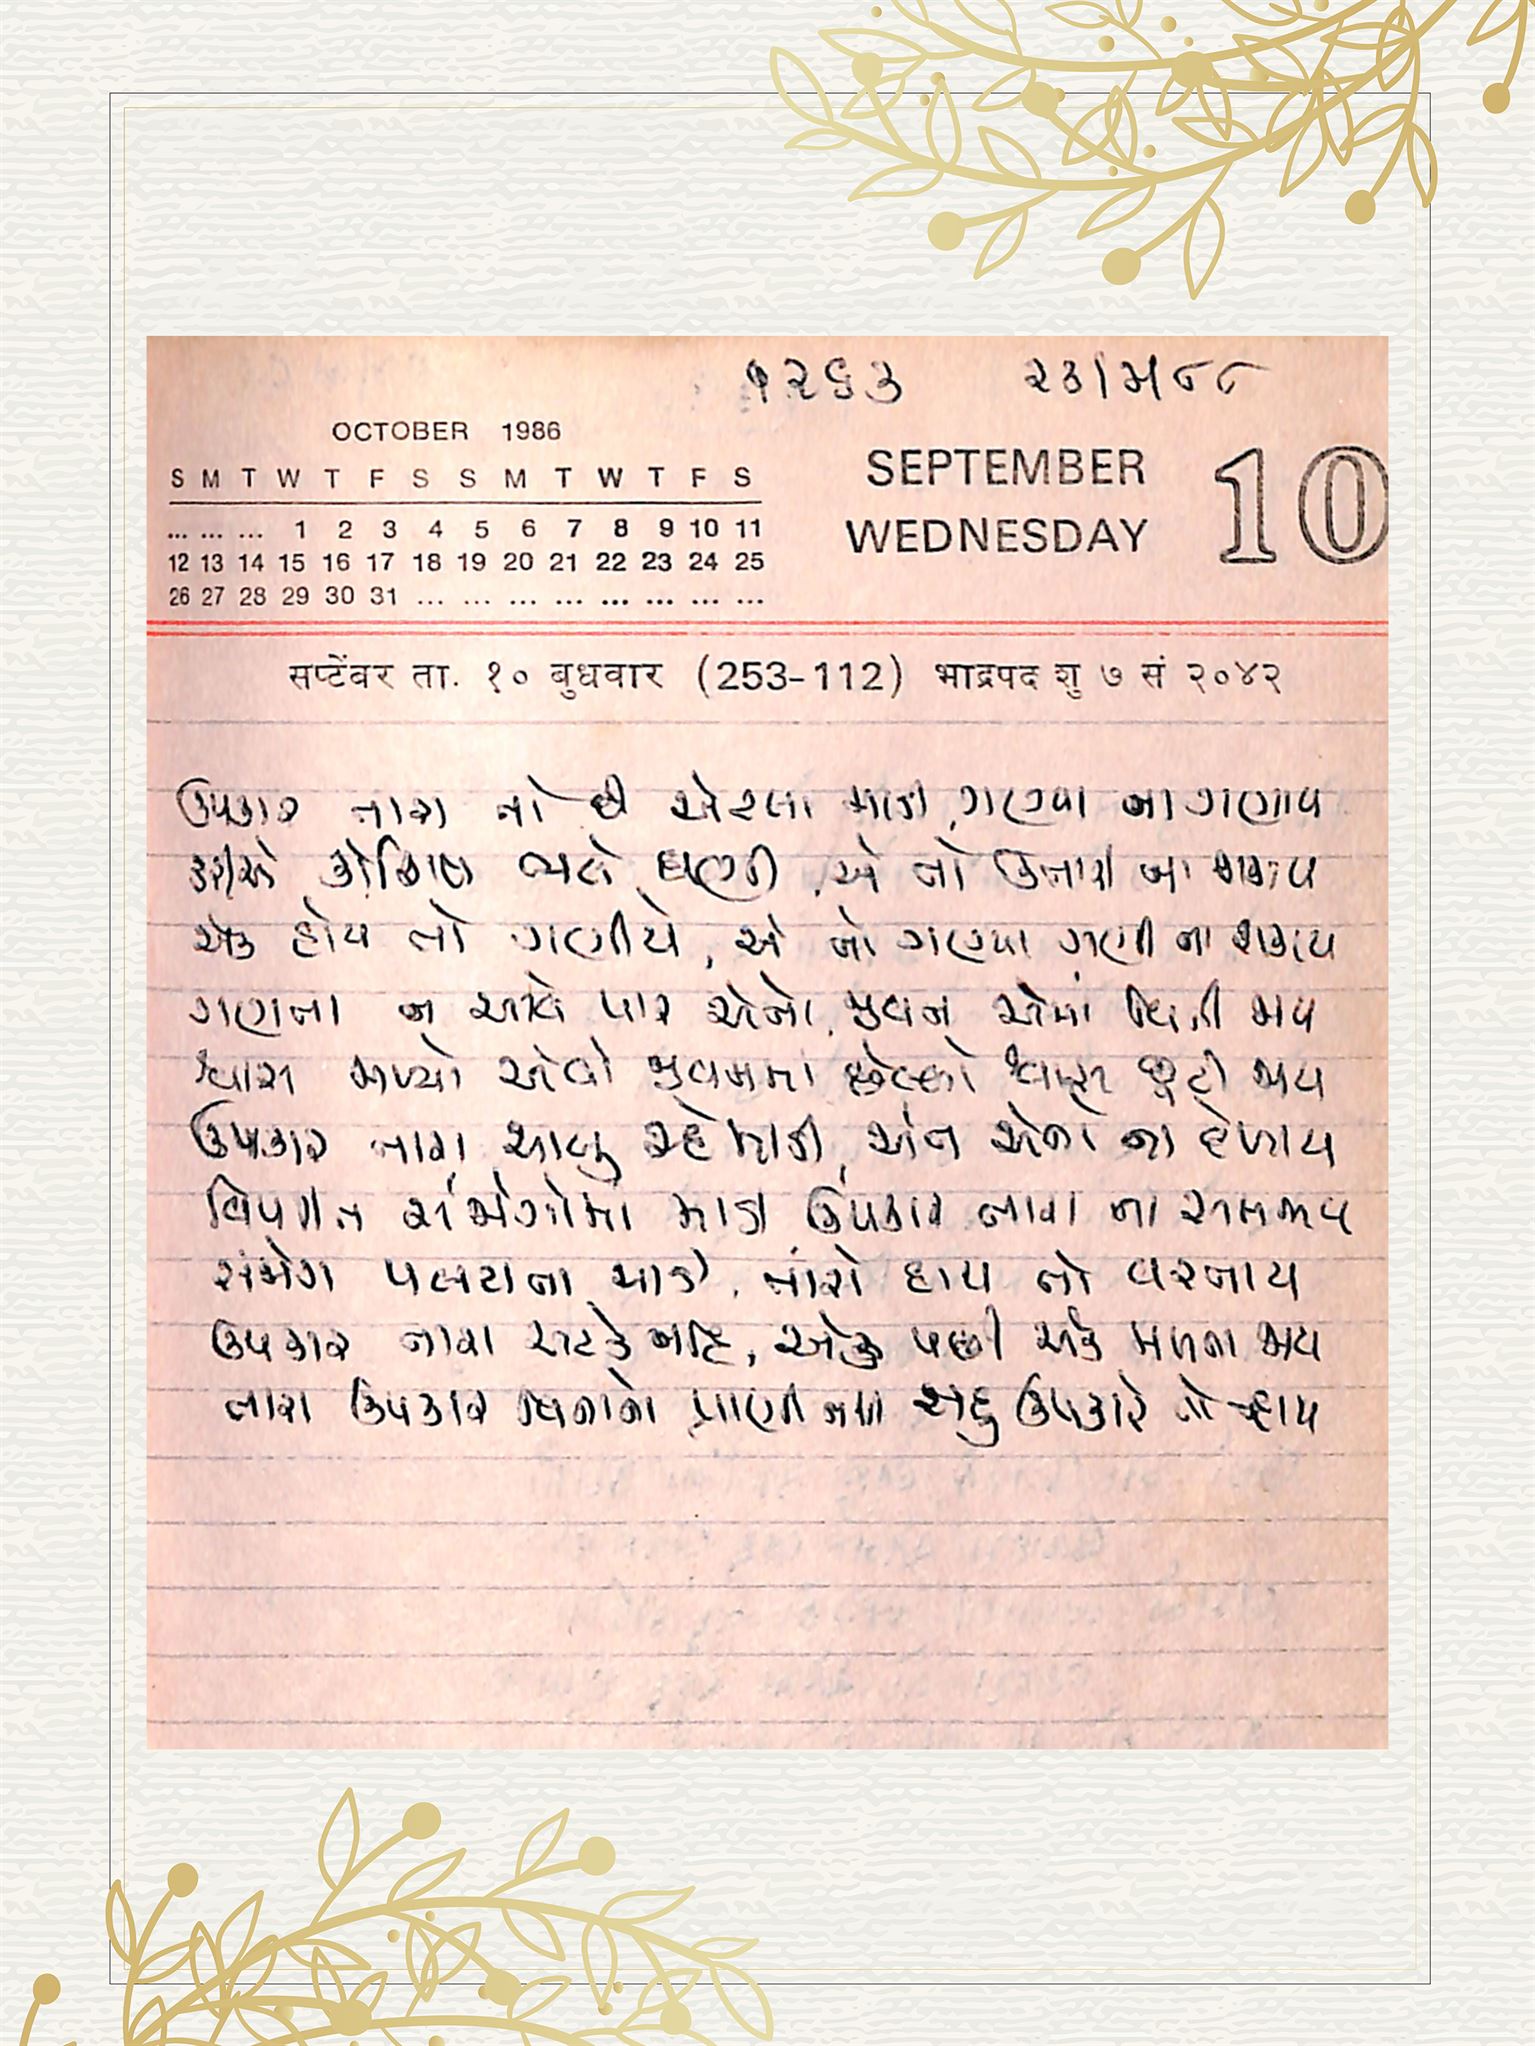 ૧૨૬૩ ૨૩/૫/૮૮
OCTOBER 1986
S M T W T F S S M T W T F S
... ... ... 1 2 3 4 5 6 7 8 9 10 11
12 13 14 15 16 17 18 19 20 21 22 23 24 25
26 27 28 29 30 31 ... ... ... ... ... ... ... ...
SEPTEMBER
WEDNESDAY 10
सप्टेंबर ता. १० बुधवार (253-112) भाद्रपद शु ७ सं २०४२
ઉપકાર તારા તો છે એટલા માડી, ગણ્યા ના ગણાય
કરીએ કોશિશ ભલે ઘણી, એ તો ઉતારી ના શકાય
એક હોય તો ગણીયે, એ તો ગણ્યા ગણી ના શકાય
ગણતા ન આવે પાર એનો, જીવન એમાં વિતી જાય
શ્વાસ મળ્યો એવો જીવનમાં છેલ્લો શ્વાસ છૂટી જાય
ઉપકાર તારા ચાલુ રહે માડી, અંત એનો ના દેખાય
વિપરીત સંજોગોમાં માડી ઉપકાર તારા ના સમજાય
સંજોગ પલટાતા માડી, તારો હાથ તો વરતાય
ઉપકાર તારા અટકે નહિ, એક પછી એક મળતા જાય
તારા ઉપકાર વિનાનો પ્રાણી નથી સહુ ઉપકારે તો ન્હાય